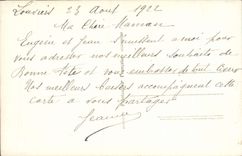 Louviers 23 Aout 1922
Ma Chère Maman
Eugène et Jean s'unissent a moi pour
vous adresser nos meilleurs souhaits de
Bonne fête et vous embrasser de tout Cœur
Nos meilleurs baisers accompagnent cette
carte a vous partager
Jeanne